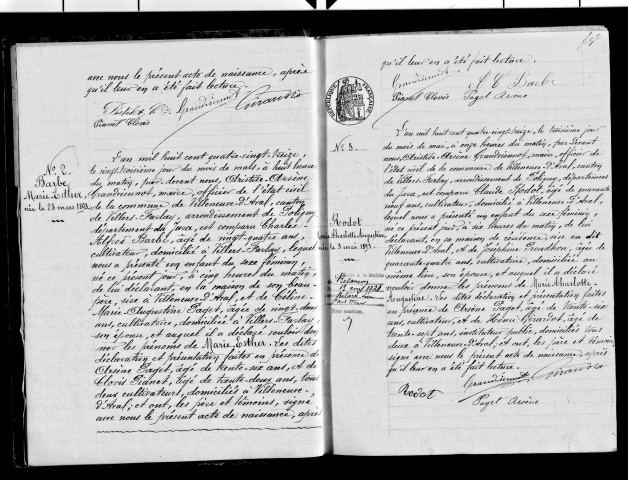 avec nous le présent acte de naissance, après
qu'il leur en a été fait lecture.
Grandviennot Girardot
Pianet Clovis
N° 2.
Barbe
Marie-Esther,
née le 23 mars 1893.
L'an mil huit cent quatre-vingt-treize,
le vingt-troisième jour du mois de mars, à huit heures
du matin, par devant nous, Christin-Arsène
Grandviennot, maire, officier de l'état civil
de la commune de Villeneuve-d'Aval, canton
de Villers-Farlay, arrondissement de Poligny,
département du Jura, est comparu Charles-
Alfred Barbe, âgé de vingt-quatre ans,
cultivateur, domicilié à Villers-Farlay, lequel
nous a présenté un enfant du sexe féminin,
né ce présent jour, à cinq heures du matin,
de lui déclarant, en la maison de son beau-
père, sise à Villeneuve-d'Aval, et de Céline-
Marie-Augustine Paget, âgée de vingt-deux
ans, cultivatrice, domiciliée à Villers-Farlay,
son épouse, et auquel il a déclaré vouloir don-
ner les prénoms de Marie-Esther. Les dites
déclaration et présentation faites en présence de
Arsène Paget, âgé de trente-six ans, et de
Clovis Pianet, âgé de trente-deux ans, tous
deux cultivateurs, domiciliés à Villeneuve-
d'Aval; et ont, les père et témoins, signé
avec nous le présent acte de naissance, après
qu'il leur en a été fait lecture.
Grandviennot A C Barbe
Pianet Clovis Paget Arsène
N° 3.
Rodot
Marie Charlotte Augustine
née le 3 mai 1893.
L'an mil huit cent quatre-vingt-treize, le troisième jour
du mois de mai, à onze heures du matin, par devant
nous, Christin-Arsène Grandviennot, maire, officier de
l'état civil de la commune de Villeneuve-d'Aval, canton
de Villers-Farlay, arrondissement de Poligny, département
du Jura, est comparu Claude Rodot, âgé de quarante-
neuf ans, cultivateur, domicilié à Villeneuve-d'Aval,
lequel nous a présenté un enfant du sexe féminin,
né ce présent jour, à six heures du matin, de lui
déclarant, en sa maison de résidence sise au dit
Villeneuve-d'Aval, et de Joséphine âgée de
quarante-quatre ans, cultivatrice, domiciliée au
même lieu, son épouse, et auquel il a déclaré
vouloir donner les prénoms de Marie-Charlotte-
Augustine. Les dites déclaration et présentation faites
en présence de Arsène Paget, âgé de trente-six
ans, cultivateur, et de Girardot, âgé de
trente-sept ans, instituteur public, domiciliés tous
deux à Villeneuve-d'Aval, et ont, les père et témoins,
signé avec nous le présent acte de naissance, après
qu'il leur en a été fait lecture.
Grandviennot Girardot
Rodot
Paget Arsène